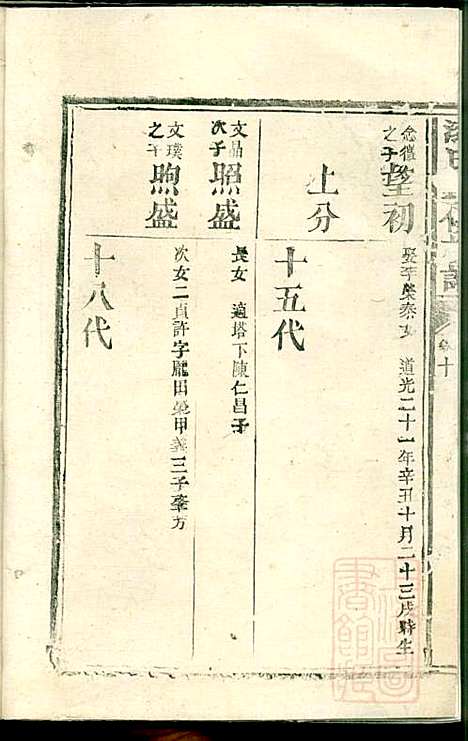 念㒷之子 望初 娶李榮泰女 道光二十一年辛丑十月二十三戌時生
上分 十五代
文品次子 照盛 長女 適塔下陳仁昌子
文璞之子 煦盛 次女二貞許字龐田欒甲義三子肇方
十八代
卷十